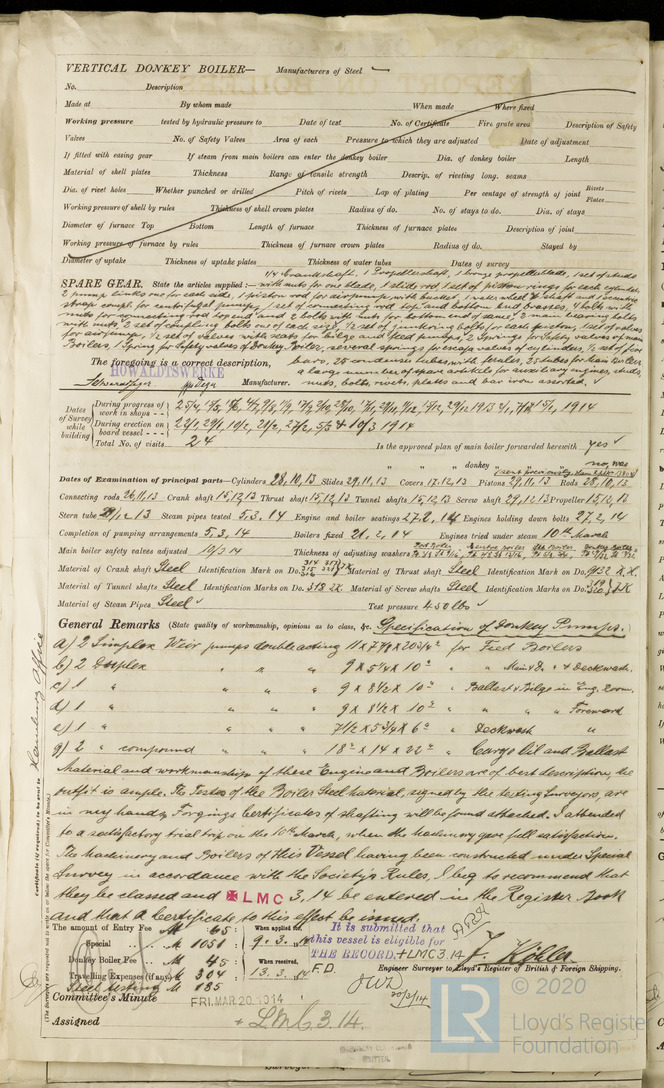 VERTICAL DONKEY BOILER— Manufacturers of Steel
No. Description
Made at By whom made When made Where fixed
Working pressure tested by hydraulic pressure to Date of test No. of Certificate Fire grate area Description of Safety
Valves No. of Safety Valves Area of each Pressure to which they are adjusted Date of adjustment
If fitted with easing gear If steam from main boilers can enter the donkey boiler Dia. of donkey boiler Length
Material of shell plates Thickness Range of tensile strength Descrip. of riveting long. seams
Dia. of rivet holes Whether punched or drilled Pitch of rivets Lap of plating Per centage of strength of joint Rivets Plates
Working pressure of shell by rules Thickness of shell crown plates Radius of do. No. of stays to do. Dia. of stays
Diameter of furnace Top Bottom Length of furnace Thickness of furnace plates Description of joint
Working pressure of furnace by rules Thickness of furnace crown plates Radius of do. Stayed by
Diameter of uptake Thickness of uptake plates Thickness of water tubes Dates of survey
1/4 Crankshaft, 1 Propellershaft, 1 bronze propellerblade, 1 set of studs
SPARE GEAR. State the articles supplied:— with nuts for one blade, 1 slide rod 1 set of piston rings for each cylinder
2 pump links one for each side, 1 piston rod for airpump with bucket, 1 shaft and 1 eccentric
strap compl. for centrifugal pump, 1 set of connecting rod top and bottom end brasses, 4 bolts with
nuts for connecting rod top end and 2 bolts with nuts for bottom end of same, 2 main bearing bolts
with nuts, 2 set of coupling bolts one of each size, 1/2 set of bolts for each piston, 1 set of valves
for airpump, 1/2 set of valves with seats for bilge and feed pumps, 2 springs for safety valves of main
Boilers, 1 spring for safety valves of Donkey Boiler, several springs for escape valves of cylinders, 1/2 set of fire
bars, 25 condenser tubes with ferules, 25 tubes for Main Boiler
The foregoing is a correct description,
HOWALDTSWERKE
a large number of spare articles for auxiliary engines, studs
Manufacturer. nuts, bolts, rivets, plates and bar iron assorted.
Dates of Survey while building
During progress of work in shops - -
1913 1914
During erection on board vessel - - - 10/3 1914
Total No. of visits 24 Is the approved plan of main boiler forwarded herewith yes
" " " donkey " " " no, was
sent previously
Dates of Examination of principal parts—Cylinders 28,10,13 Slides 29,11,13 Covers 17.12,13 Pistons 29,11,13 Rods 28,10,13
Connecting rods 26,11,13 Crank shaft 15,12,13 Thrust shaft 15,12,13 Tunnel shafts 15,12,13 Screw shaft 29,12,13 Propeller 15,12,13
Stern tube 29/12 13 Steam pipes tested 5,3,14 Engine and boiler seatings 27,2,14 Engines holding down bolts 27,2,14
Completion of pumping arrangements 5,3,14 Boilers fixed 21,2,14 Engines tried under steam 10th March
Main boiler safety valves adjusted 10/3 14 Thickness of adjusting washers
Material of Crank shaft Steel Identification Mark on Do. Material of Thrust shaft Steel Identification Mark on Do.
Material of Tunnel shafts Steel Identification Marks on Do. 318 Material of Screw shafts Steel Identification Marks on Do.
Material of Steam Pipes Steel Test pressure 450 lbs
General Remarks (State quality of workmanship, opinions as to class, &c. Specification of Donkey Pumps.
a) 2 Simplex Weir pumps double acting for Feed Boilers
b) 2 Duplex " " " 9 x 5 1/4 x 10" " Main & D. " & Deckwash.
c) 1 " " " " 9 x 8 1/2 x 10" " Ballast & Bilge in Eng. Room.
d) 1 " " " " 9 x 8 1/2 x 10" " " " Foreward
e) 1 " " " " 7 1/2 x 5 3/4 x 6" " Deckwash "
g) 2 " compound " " 18" x 14 x 22" " Cargo Oil and Ballast
Material and workmanship of these Engine and Boilers are of best description, the
outfit is ample. The Testes of the Boiler Steel material, signed by the testing Surveyors, are
in my hands, Forgings Certificates of shafting will be found attached. I attended
to a satisfactory trial trip on the 10th March, when the machinery gave full satisfaction.
The Machinery and Boilers of this Vessel having been constructed under Special
Survey in accordance with the Society's Rules, I beg to recommend that
they be classed and ✠ LMC 3,14 be entered in the Register Book
and that a Certificate to this effect be issued.
The amount of Entry Fee M 65 : When applied for,
Special M 1051 : 9.3.14
Donkey Boiler Fee M 45 : When received,
Travelling Expenses (if any) M 304 : 13.3.14
Steel testing M 135
It is submitted that
this vessel is eligible for
THE RECORD. + LMC 3.14
F.D.
20/3/14
F. Köhler
Engineer Surveyor to Lloyd's Register of British & Foreign Shipping.
Committee's Minute FRI. MAR. 20 1914
Assigned + LMC 3.14.
Certificate (if required) to be sent to Hamburg Office
(The Surveyors are requested not to write on or below the space for Committee's Minute.)
© 2020
LR
Lloyd's Register
Foundation